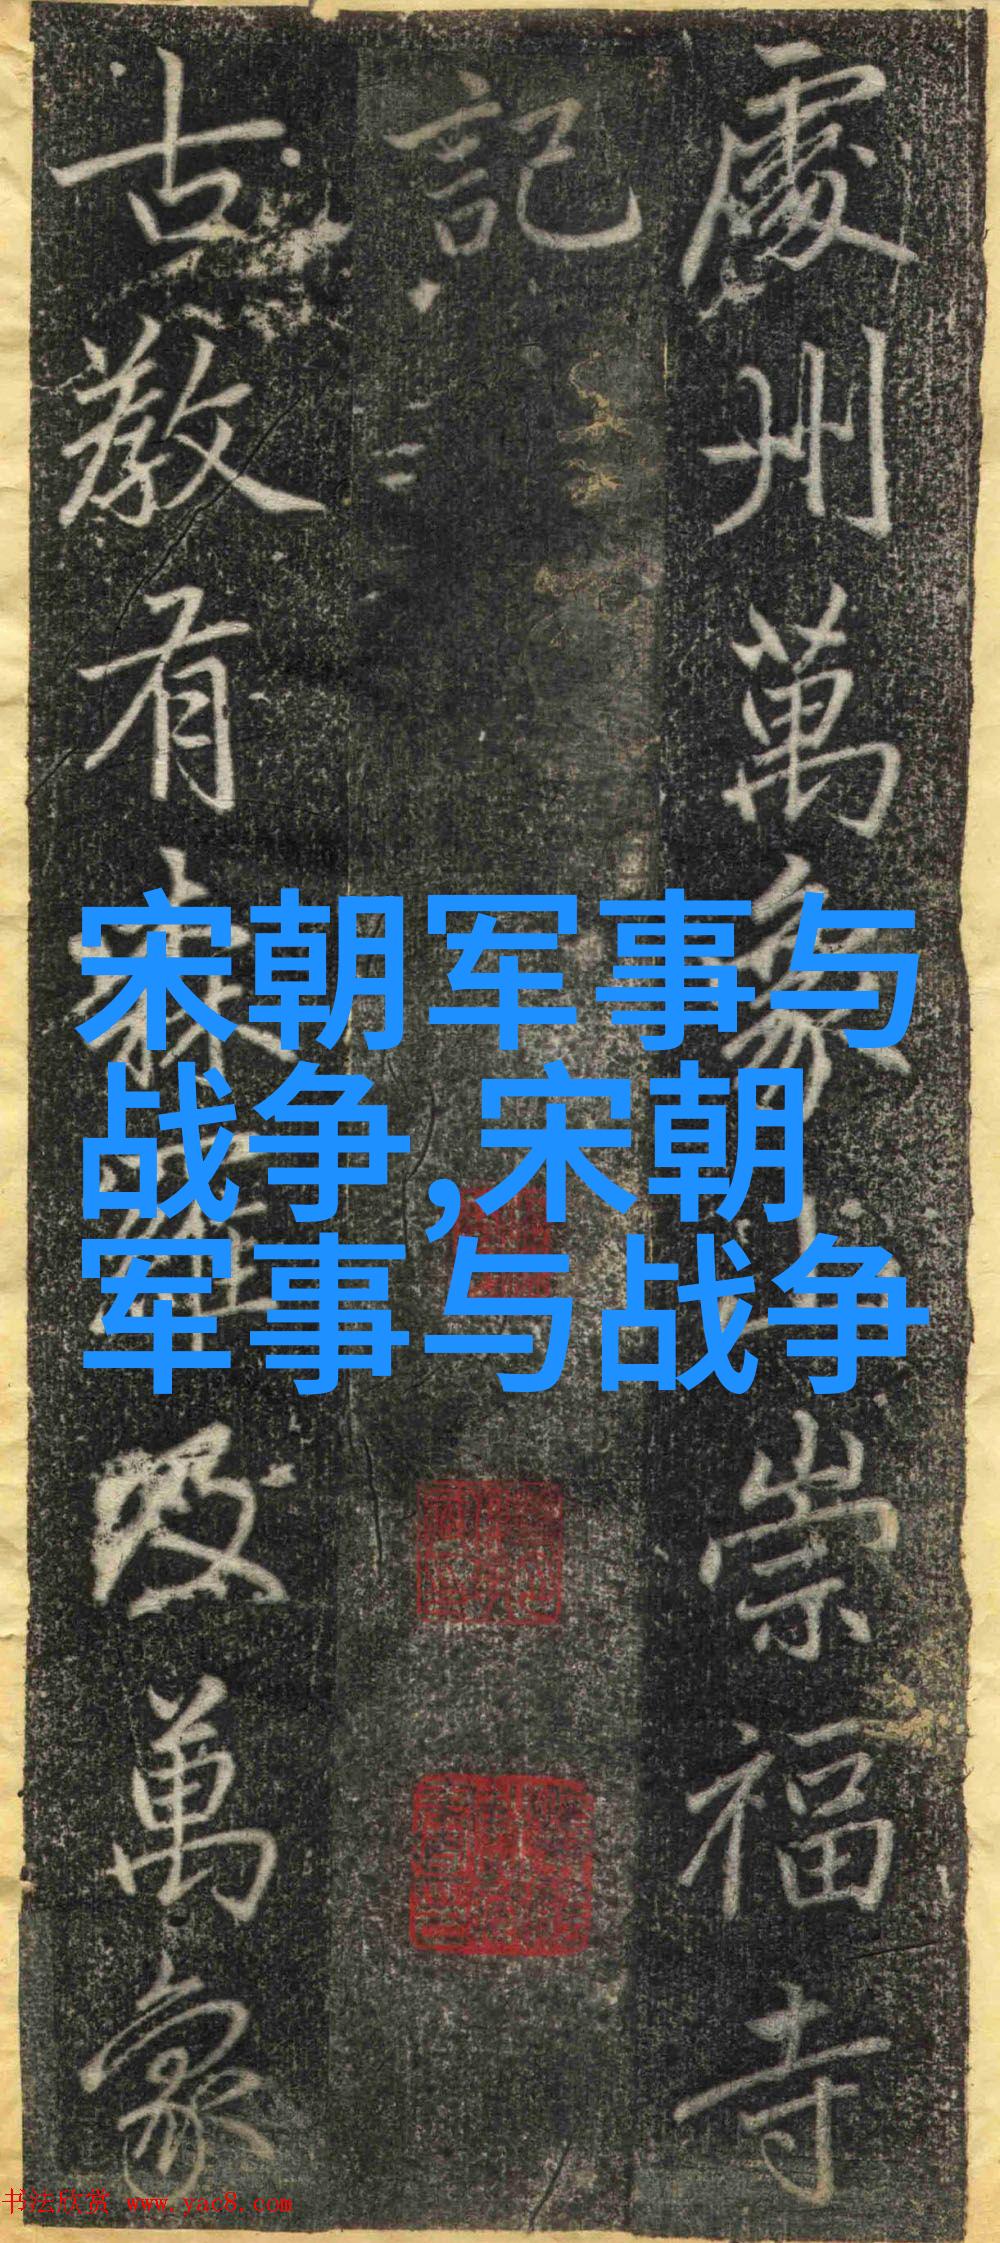 處州萬象崇福寺
記
古教有森羅及萬象
宋朝军事与
战争,宋朝
军事与战争
书法欣赏 www.yac8.com